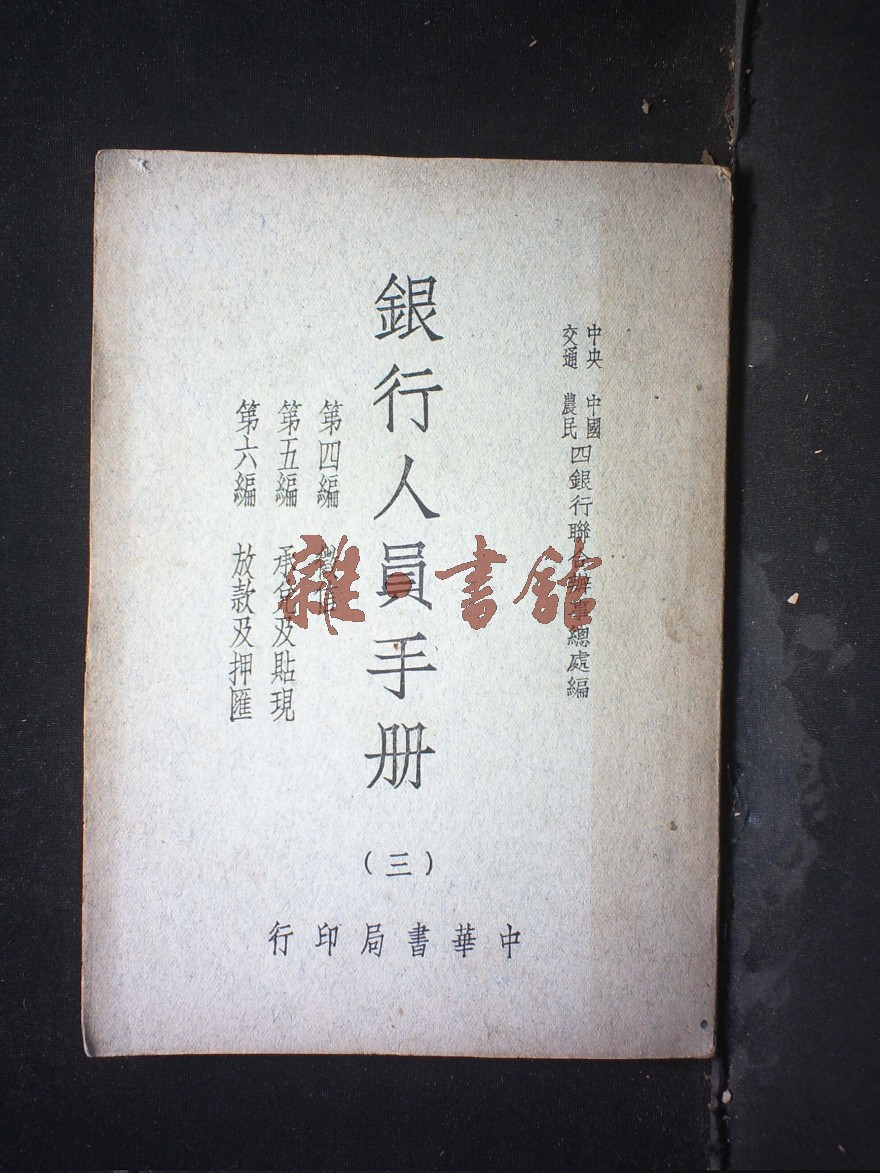 中央 中國
交通 農民 四銀行聯合辦事總處編
銀行人員手册
(三)
第四編 徵信
第五編 承兌及貼現
第六編 放款及押匯
中華書局印行
雜·書館